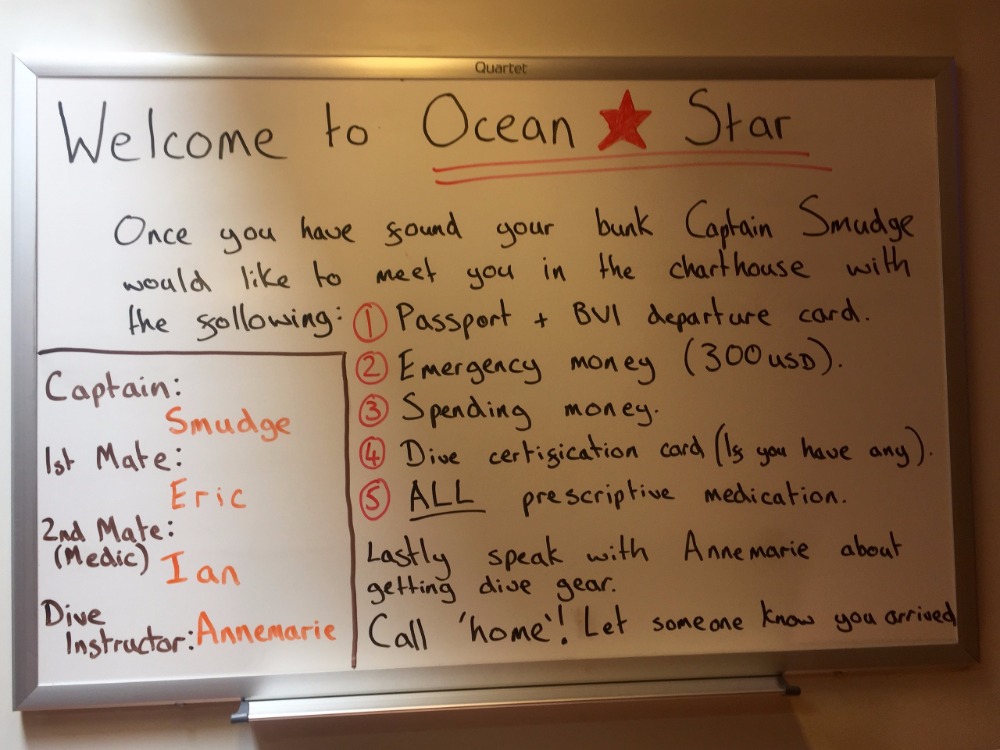 Quartet
Welcome to Ocean Star
Once you have found your bunk Captain Smudge
would like to meet you in the charthouse with
the following: ① Passport + BVI departure card.
② Emergency money (300 USD).
③ Spending money.
④ Dive certification card (If you have any).
⑤ ALL prescriptive medication.
Lastly speak with Annemarie about
getting dive gear.
Call 'home'! Let someone know you arrived
Captain:
Smudge
1st Mate:
Eric
2nd Mate:
(Medic) Ian
Dive
Instructor: Annemarie